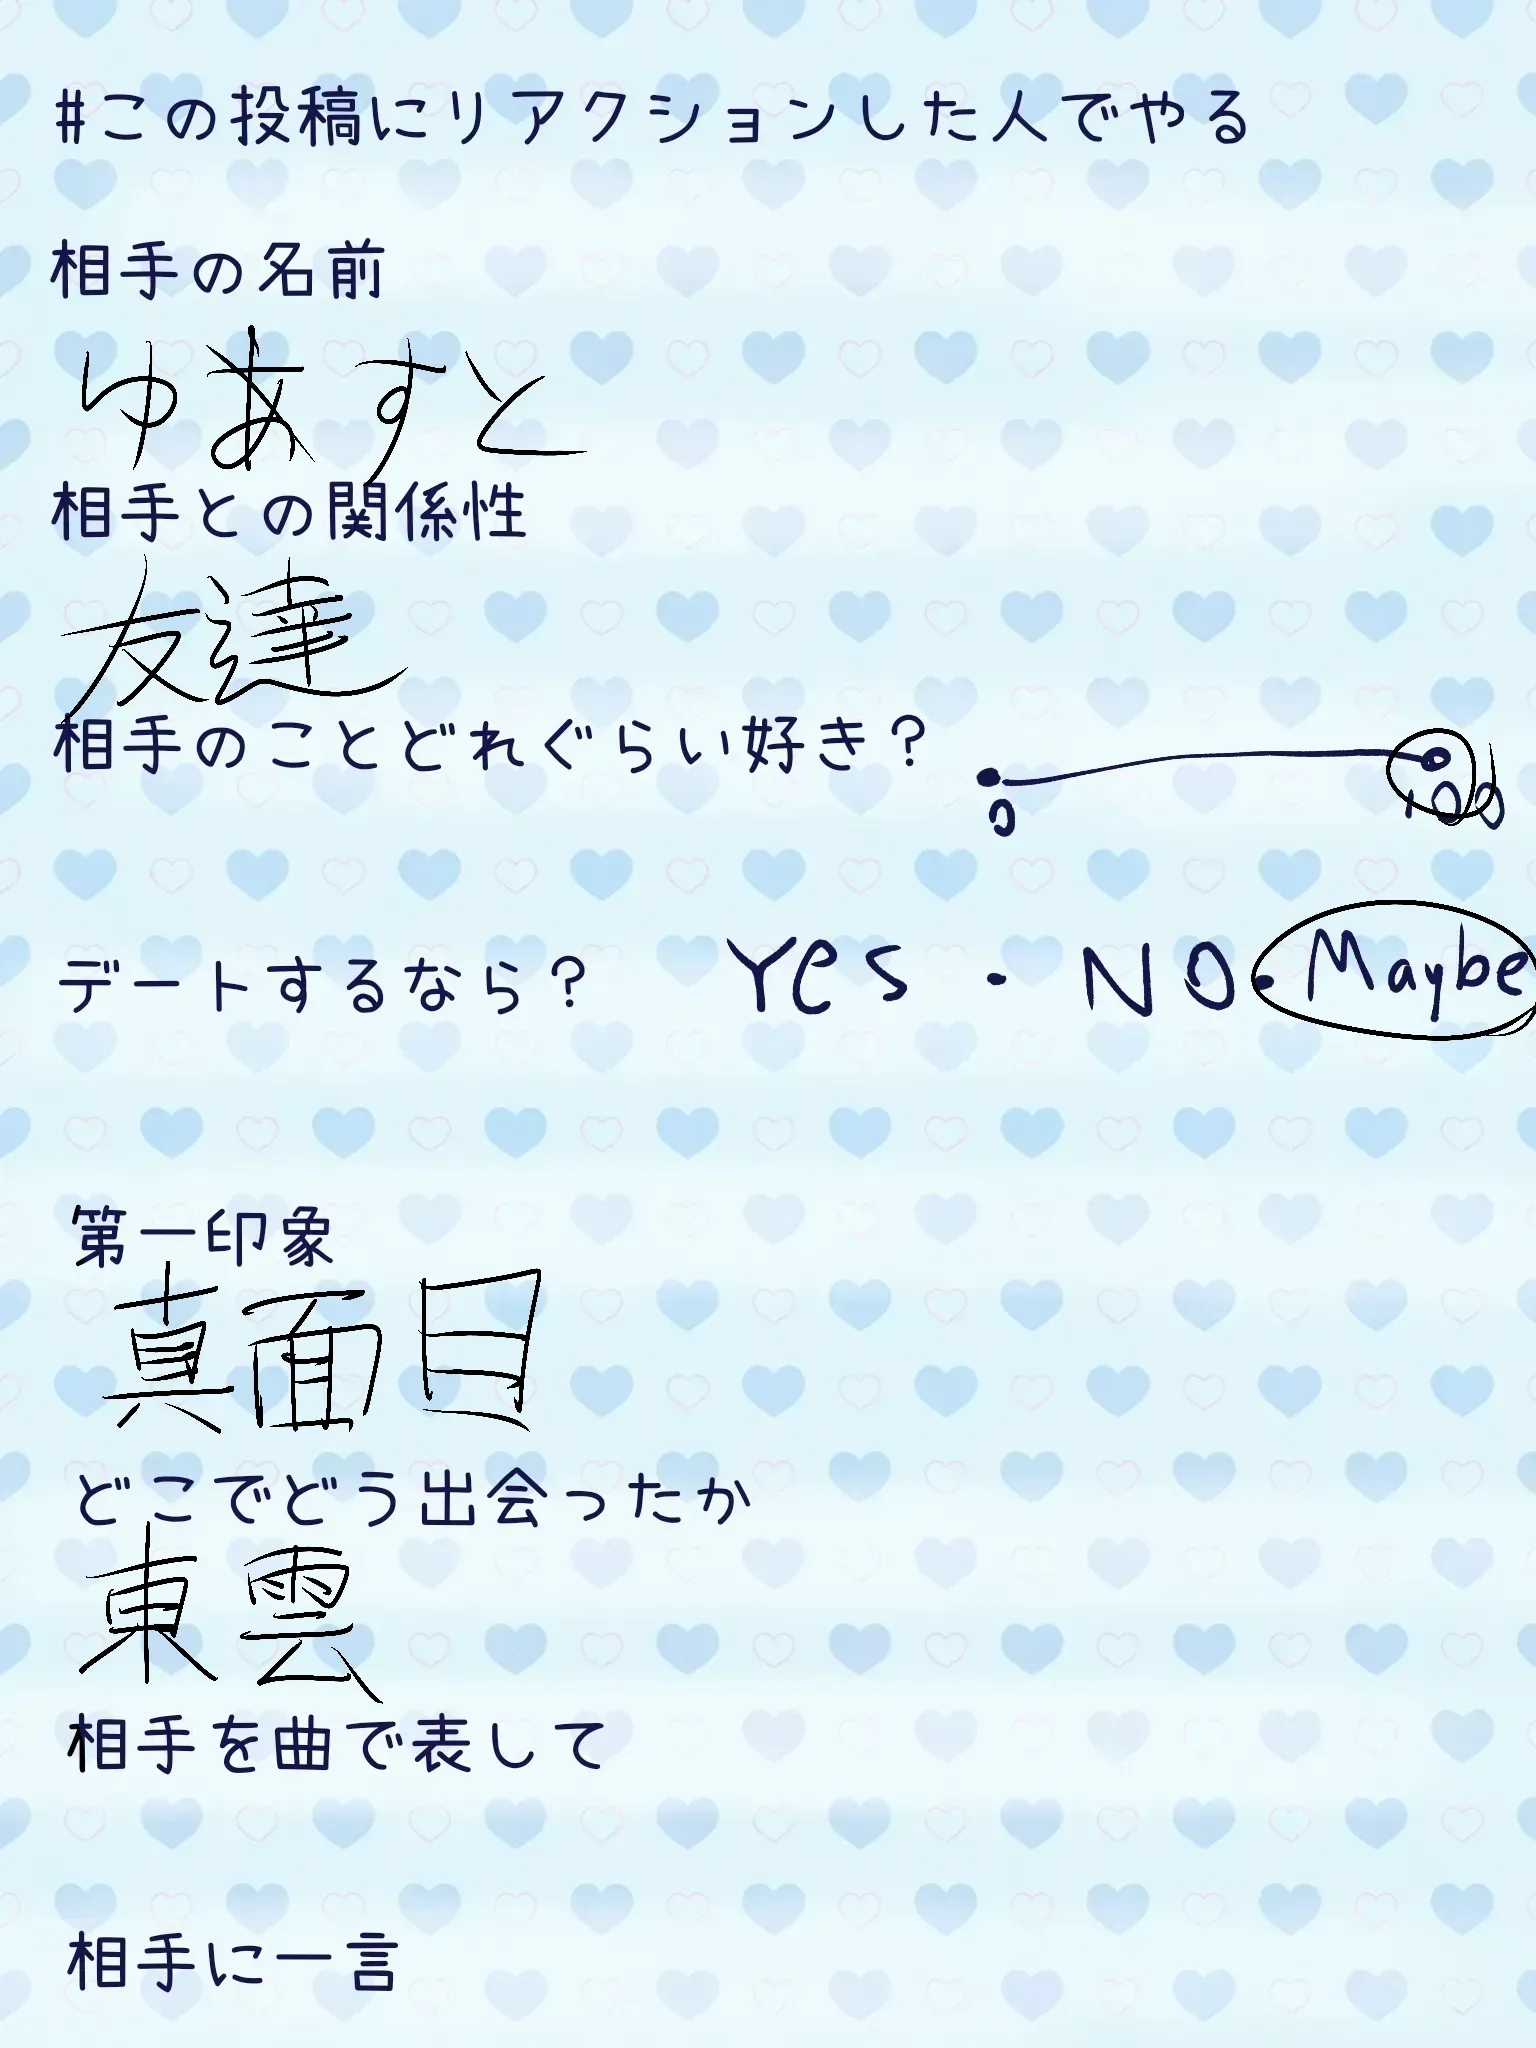 #この投稿にリアクションした人でやる
相手の名前
ゆあすと
相手との関係性
友達
相手のことどれぐらい好き?
0 100
デートするなら? Yes・NO・Maybe
第一印象
真面目
どこでどう出会ったか
東雲
相手を曲で表して
相手に一言